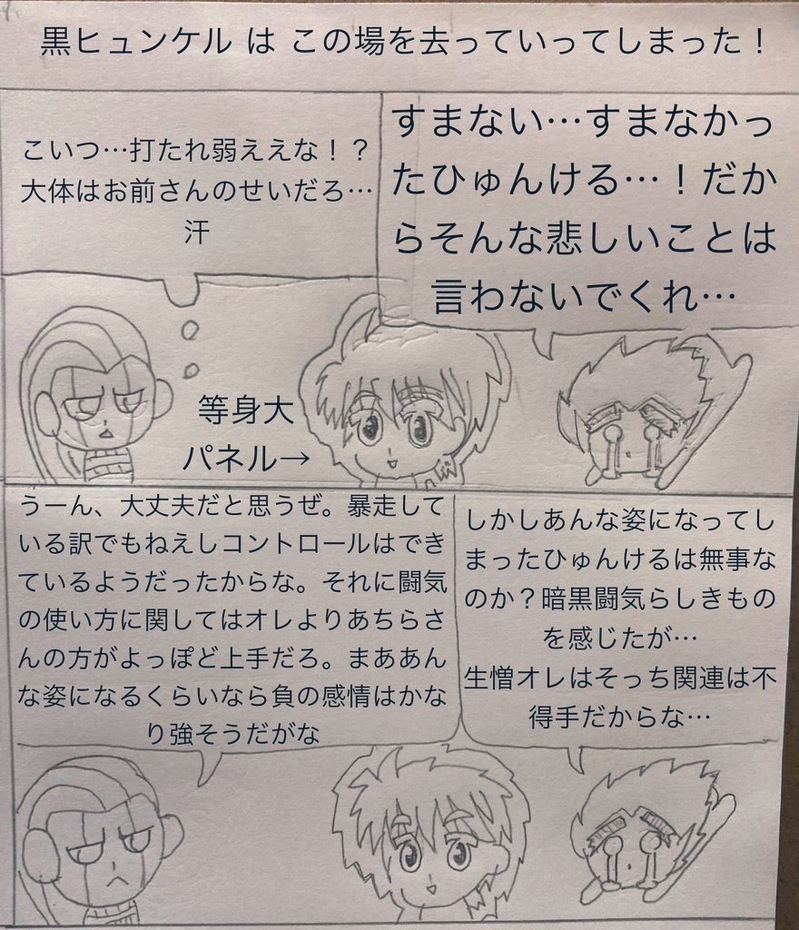 黒ヒュンケル は この場を去っていってしまった！
すまない…すまなかっ
たひゅんける…！だか
らそんな悲しいことは
言わないでくれ…
こいつ…打たれ弱ええな！？
大体はお前さんのせいだろ…
汗
等身大
パネル→
しかしあんな姿になってし
まったひゅんけるは無事な
のか？暗黒闘気らしきもの
を感じたが…
生憎オレはそっち関連は不
得手だからな…
うーん、大丈夫だと思うぜ。暴走して
いる訳でもねえしコントロールはでき
ているようだったからな。それに闘気
の使い方に関してはオレよりあちらさ
んの方がよっぽど上手だろ。まああん
な姿になるくらいなら負の感情はかな
り強そうだがな